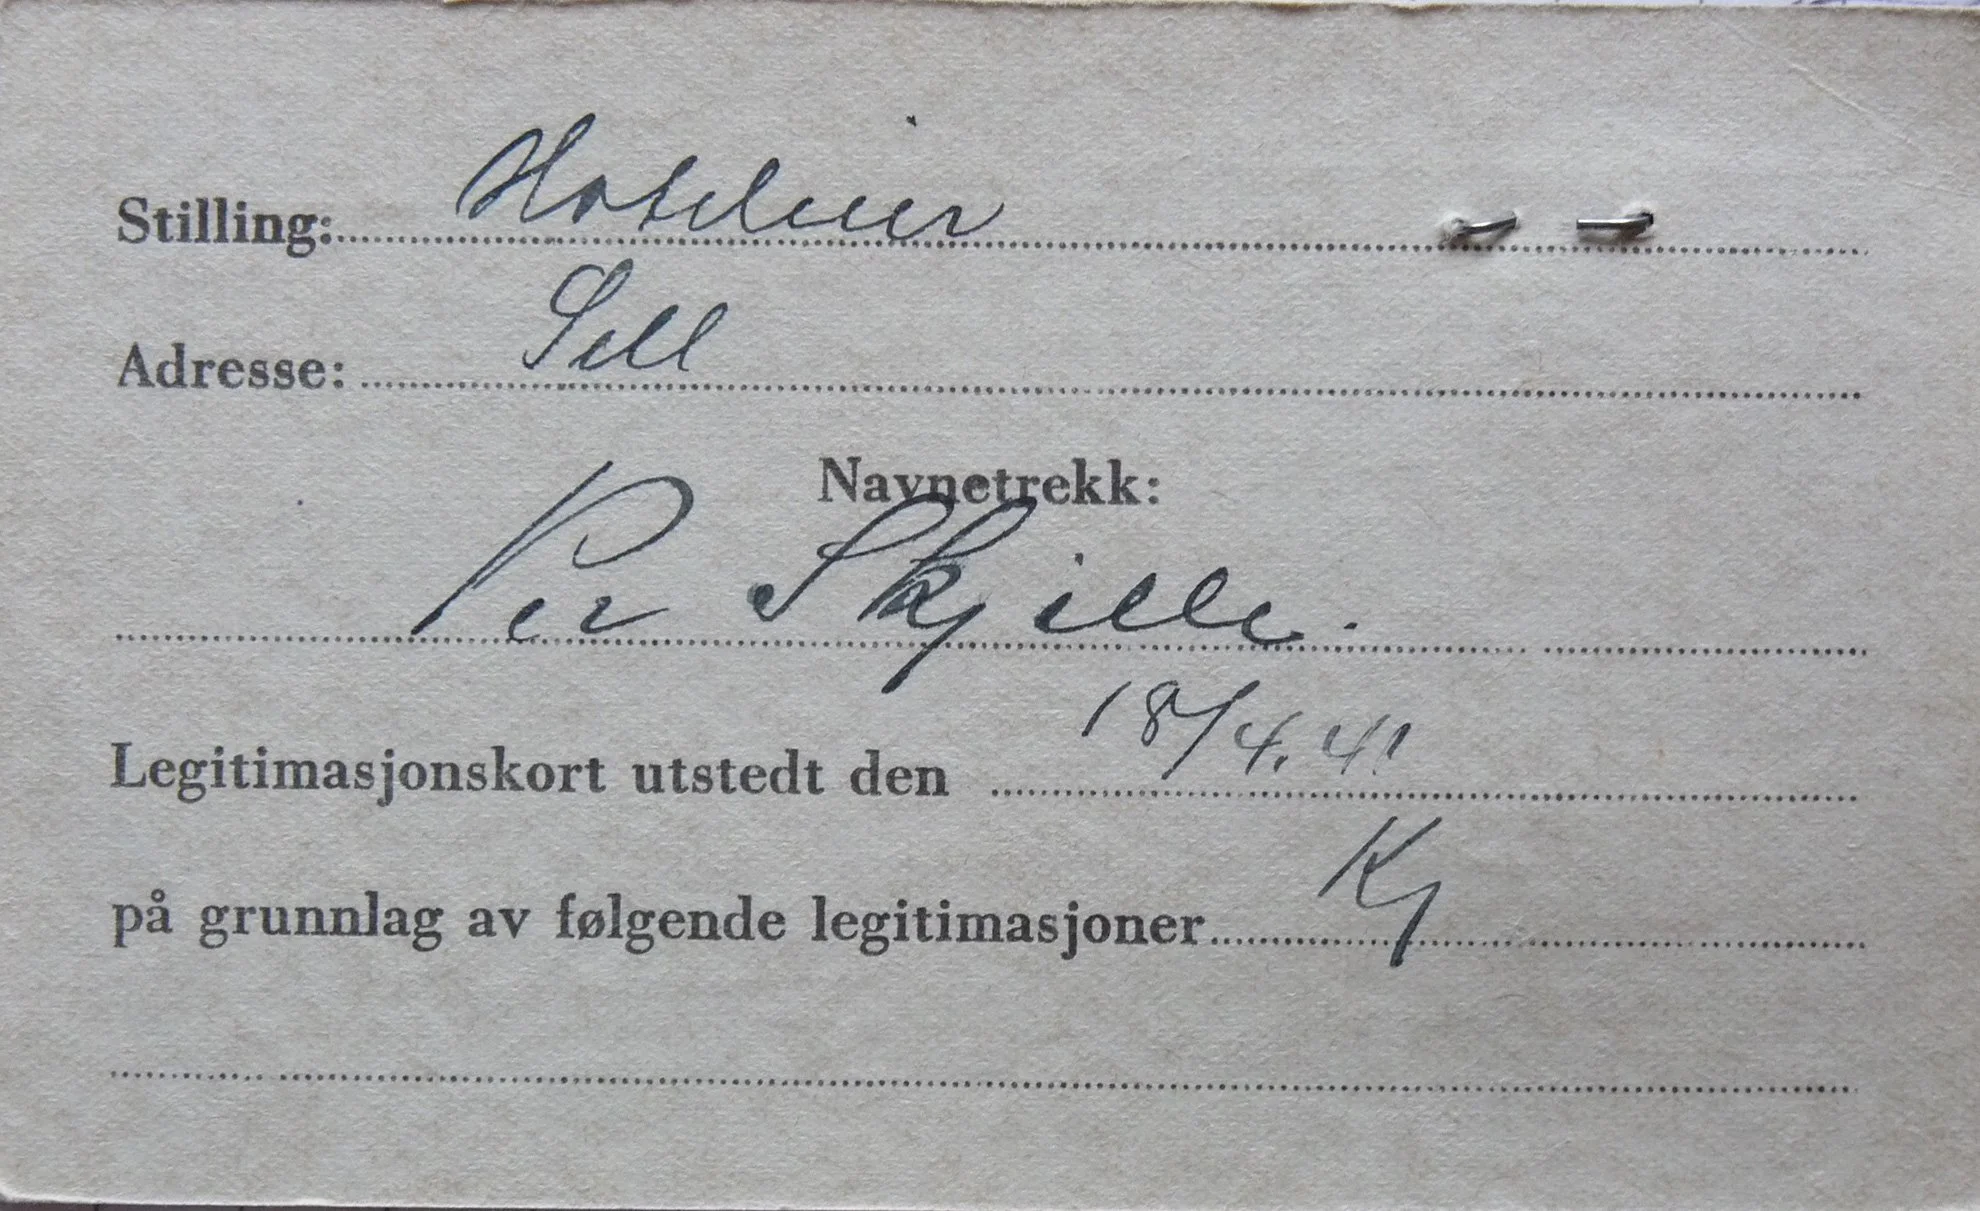 Stilling: Hoteleier
Adresse: Sell
Navnetrekk:
Per Skjelle.
Legitimasjonskort utstedt den 18/4.41
på grunnlag av følgende legitimasjoner Kj